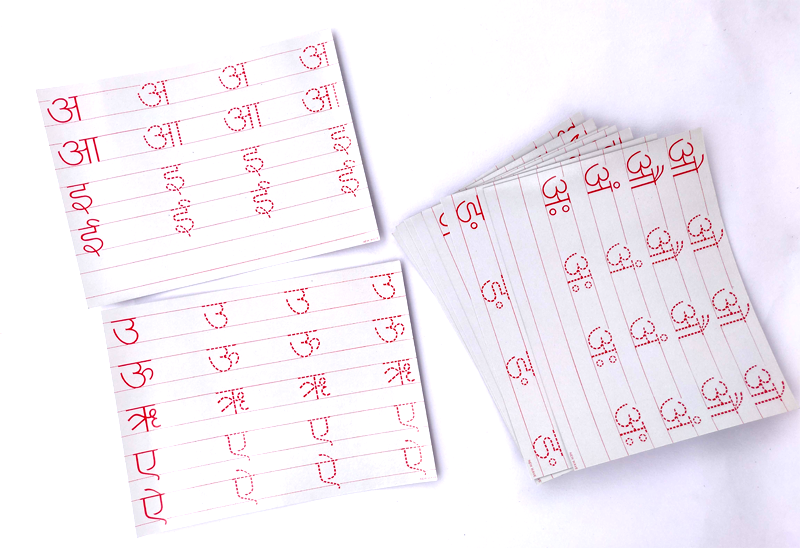 अ अ अ अ
आ आ आ आ
इ इ इ इ
ई ई ई ई
उ उ उ उ
ऊ ऊ ऊ ऊ
ऋ ऋ ऋ ऋ
ए ए ए ए
ऐ ऐ ऐ ऐ
ओ ओ ओ ओ
औ औ औ औ
अं अं अं अं
अः अः अः अः
ङ ङ ङ ङ